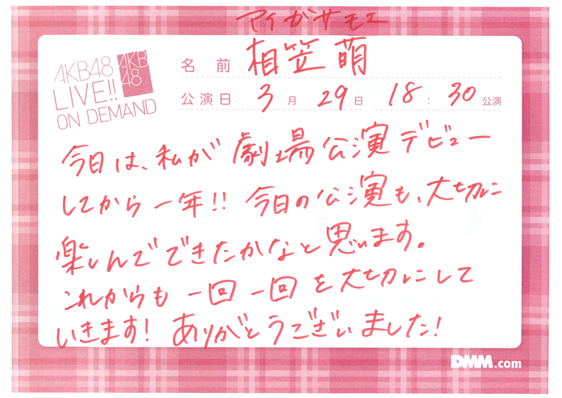 アイガサモエ
AKB48
LIVE!!
ON DEMAND
AKB
48
名前 相笠萌
公演日 3月29日 18:30公演
今日は、私が劇場公演デビュー
してから一年!! 今日の公演も、大切に
楽しんでできたかなと思います。
これからも一回一回を大切にして
いきます! ありがとうございました!
DMM.com